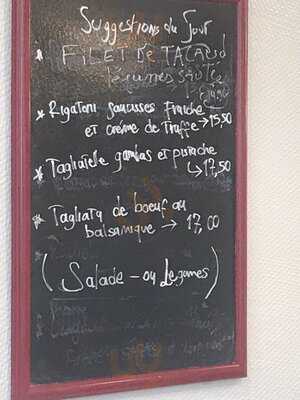 Suggestions du Jour
* FILET DE TACAUD
Légumes sautés
* Rigatoni saucisses fraiche
et crème de truffe → 15,50
* Tagliatelle gambas et pistache
↳ 17,50
* Tagliata de boeuf au
balsamique → 17,00
(Salade - ou Légumes)